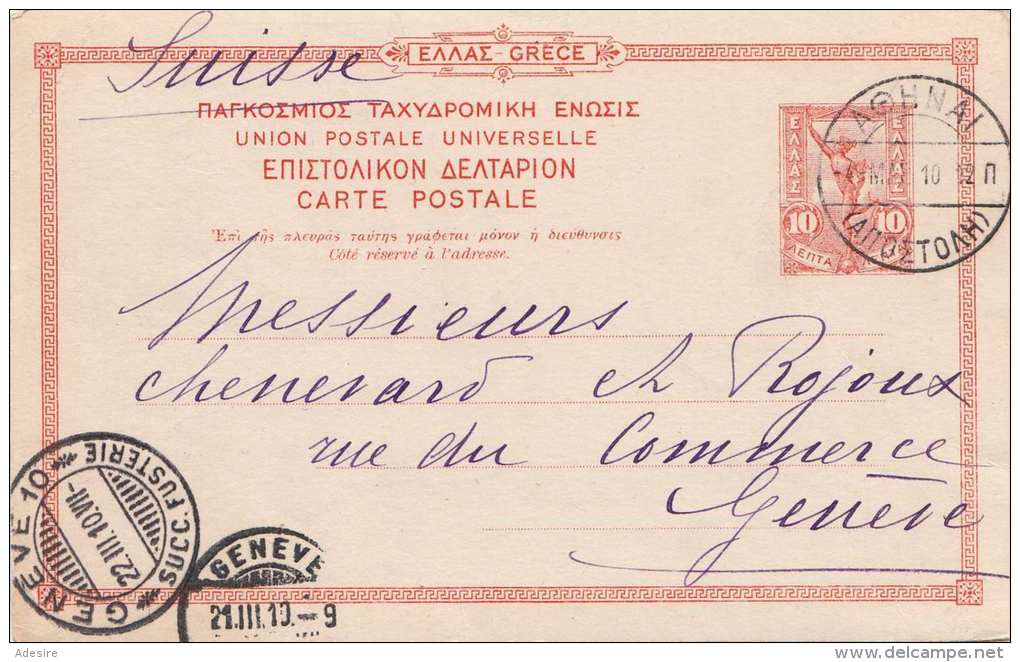 Suisse
ΕΛΛΑΣ-GRÈCE
ΠΑΓΚΟΣΜΙΟΣ ΤΑΧΥΔΡΟΜΙΚΗ ΕΝΩΣΙΣ
UNION POSTALE UNIVERSELLE
ΕΠΙΣΤΟΛΙΚΟΝ ΔΕΛΤΑΡΙΟΝ
CARTE POSTALE
Ἐπὶ τῆς πλευρᾶς ταύτης γράφεται μόνον ἡ διεύθυνσις
Côté réservé à l'adresse.
ΕΛΛΑΣ
ΕΛΛΑΣ
10 10
ΛΕΠΤΑ
ΑΘΗΝΑΙ
10 12 Π
(ΑΠΟΣΤΟΛΗ)
Messieurs
Chenevard & Rojoux
rue du Commerce
Genève
GENEVE 10
22.III.10.VII-
SUCC. FUSTERIE
GENEVE
21.III.10.-9
Adesire
delcampe.net